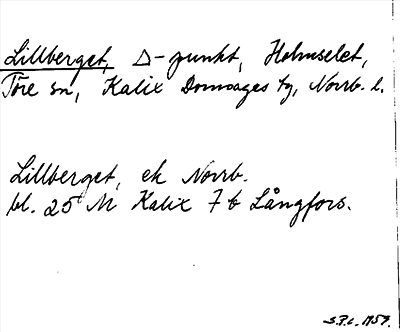 Lillberget, Δ-punkt, Holmselet,
Töre sn, Kalix Domsagas tg, Norrb. l.
Lillberget, ek Norrb.
bl. 25 M Kalix 7 b Långfors.
S.P.L. 1959.